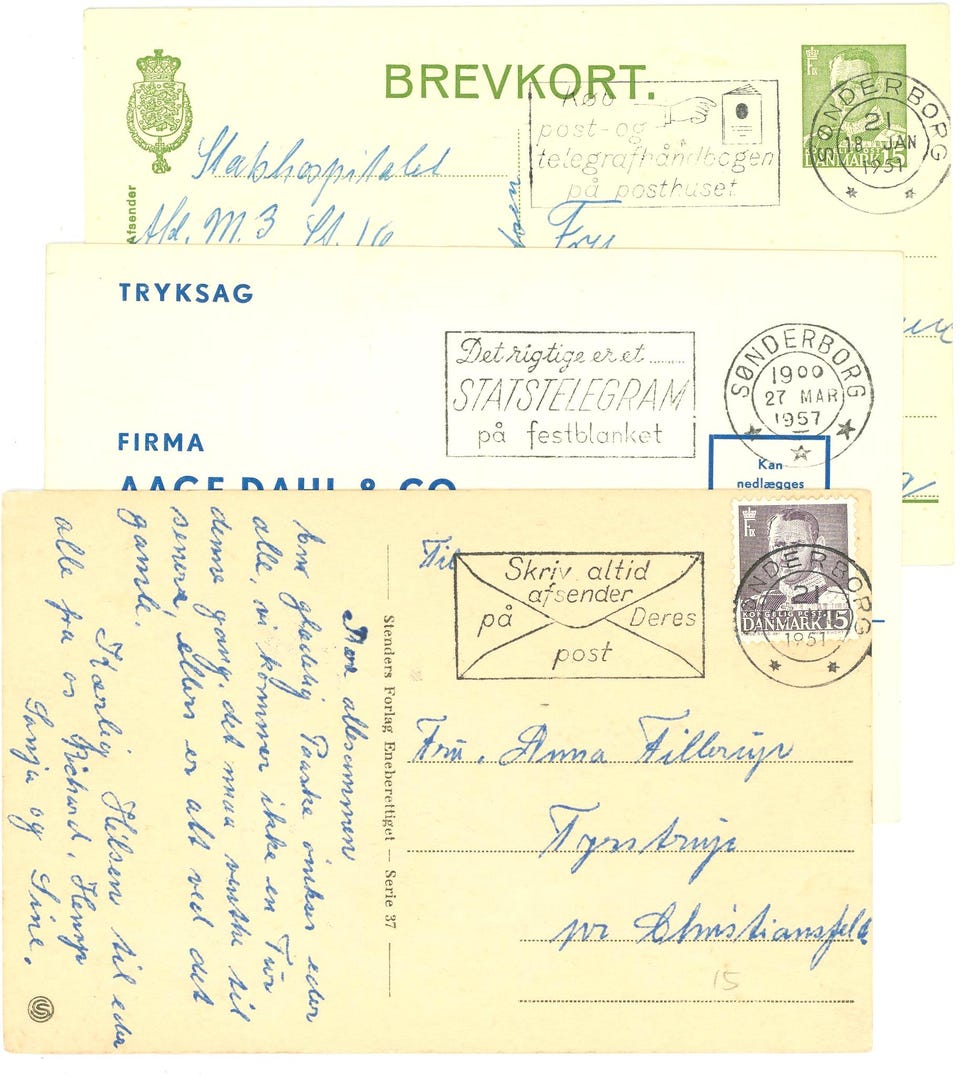 BREVKORT.
Køb
post- og
telegrafhåndbogen
på posthuset
SØNDERBORG
21
18. JAN
1951
DANMARK 15
Afsender
Stabhospitalet
Afd. M. 3 St.
Fru
TRYKSAG
Det rigtige er et
STATSTELEGRAM
på festblanket
SØNDERBORG
1900
27 MAR
1957
FIRMA
AAGE DAHL & CO
Kan
nedlægges
Til
Skriv altid
afsender
på Deres
post
SØNDERBORG
21
1951
KONGELIG POST
DANMARK 15
Kære allesammen
En glædelig Paaske ønskes eder
alle, vi kommer ikke en Tur
denne gang, det maa vente til
senere, ellers er alt ved det
gamle.
Kærlig Hilsen til eder
alle fra os Richard, Henry
Sonja og Sine.
Stenders Forlag Eneberettiget — Serie 37
Fru. Anna Fillerup
Tyrstrup
pr Christiansfeld
15